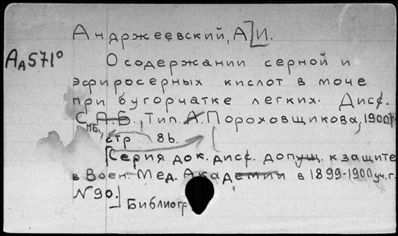 Андржеевский, А]И.
АА571° О содержании серной и
эфиросерных кислот в моче
при бугорчатке легких. Дисс.
СПБ, Тип. А. Пороховщикова, 1900г
стр. 86.
[Серия док. дисс. допущ. к защите
в Воен. Мед. Академии в 1899-1900 уч. г.
№90.] Библиогр